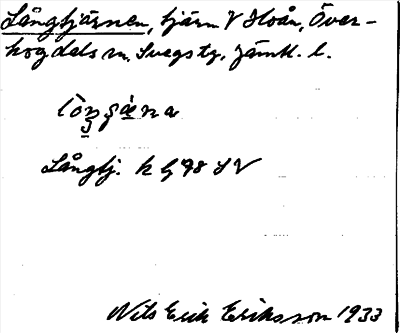 Långtjärnen, tjärn V Hoån, Över-
hogdals sn. Svegs tg, Jämtl. l.
Långtj. k G 98 SV
Nils Erik Eriksson 1933